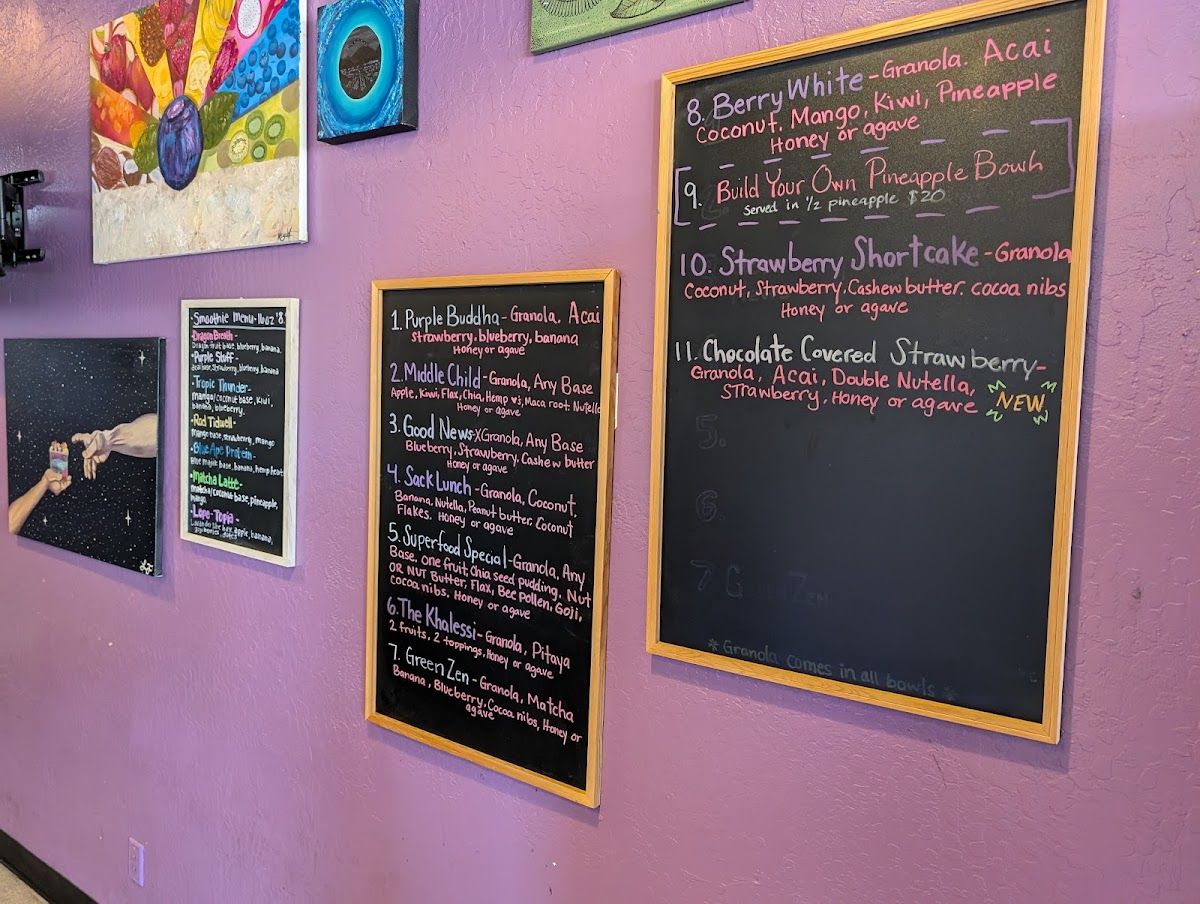 Smoothie Menu - 16oz $8
•Dragon Breath-
Dragon fruit base, blueberry, banana,
•Purple Stuff-
acai base, strawberry, blueberry, banana
•Tropic Thunder-
mango/coconut base, kiwi,
banana, blueberry,
•Rod Tidwell-
Mango base, strawberry, mango
•Blue Ape Protein-
Blue majik base, banana, hemp heart
•Matcha Latte-
matcha/coconut base, pineapple,
mango
•Lope-Topia-
apple, banana,
1. Purple Buddha - Granola, Acai
Strawberry, blueberry, banana
Honey or agave
2. Middle Child - Granola, Any Base
Apple, Kiwi, Flax, Chia, Hemp ♥'s, Maca root. Nutella
Honey or agave
3. Good News - XGranola, Any Base
Blueberry, Strawberry, Cashew butter
Honey or agave
4. Sack Lunch - Granola, Coconut,
Banana, Nutella, Peanut butter, Coconut
Flakes. Honey or agave
5. Superfood Special - Granola, Any
Base, one fruit, Chia seed pudding, Nut
OR NUT Butter, Flax, Bee Pollen, Goji,
Cocoa nibs, Honey or agave
6. The Khalessi - Granola, Pitaya
2 fruits, 2 toppings, Honey or agave
7. Green Zen - Granola, Matcha
Banana, Blueberry, Cocoa nibs, Honey or
agave
8. Berry White - Granola. Acai
Coconut, Mango, Kiwi, Pineapple
Honey or agave
9. Build Your Own Pineapple Bowh
Served in 1/2 pineapple $20
10. Strawberry Shortcake - Granola
Coconut, Strawberry, Cashew butter. cocoa nibs
Honey or agave
11. Chocolate Covered Strawberry-
Granola, Acai, Double Nutella,
Strawberry, Honey or agave NEW
5.
6.
7 Green Zen
*Granola comes in all bowls *